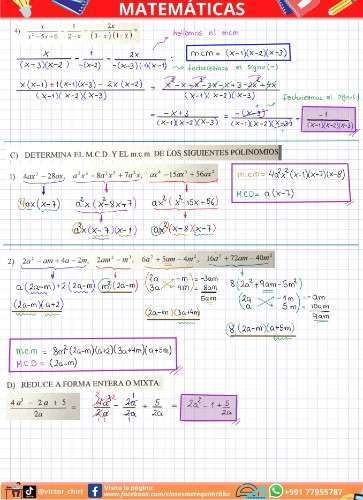 MATEMÁTICAS
4) x/(x²-5x+6) - 1/(2-x) - 2x/((3-x)(1-x)) =
hallamos el mcm
x/((x-3)(x-2)) - 1/(-(x-2)) - 2x/(-(x-3)(-)(x-1))
mcm = (x-1)(x-2)(x-3)
factorizamos el signo (-)
x(x-1)+1(x-1)(x-3) - 2x(x-2) / (x-1)(x-2)(x-3) = x²-x+x²-3x-x+3-2x²+4x / (x-1)(x-2)(x-3)
factorizamos el signo (-)
= -x+3 / (x-1)(x-2)(x-3) = -(x-3) / (x-1)(x-2)(x-3) = -1 / (x-1)(x-2)(x-3)
C) DETERMINA EL M.C.D. Y EL m.c.m. DE LOS SIGUIENTES POLINOMIOS
1) 4ax² - 28ax, a²x³ - 8a²x² + 7a²x, ax⁴ - 15ax³ + 56ax²
mcm = 4a²x²(x-1)(x-7)(x-8)
MCD = a(x-7)
4ax(x-7) a²x(x²-8x+7) ax²(x²-15x+56)
a²x(x-7)(x-1) ax²(x-8)(x-7)
2) 2a² - am + 4a - 2m, 2am² - m³, 6a² + 5am - 4m², 16a² + 72am - 40m²
a(2a-m)+2(2a-m) m²(2a-m) 2a -m = -3am 8(2a²+9am-5m²)
3a 4m = 8am 2a -1m = -am
(2a-m)(a+2) 5am a 5m = 10am
9am
(2a-m)(3a+4m) 8(2a-m)(a+5m)
mcm = 8m²(2a-m)(a+2)(3a+4m)(a+5m)
MCD = (2a-m)
D) REDUCE A FORMA ENTERA O MIXTA
(4a³ - 2a + 5)/2a = 4a³/2a - 2a/2a + 5/2a = 2a² - 1 + 5/2a
@victor_chirI
Visita la página:
+591 77955787